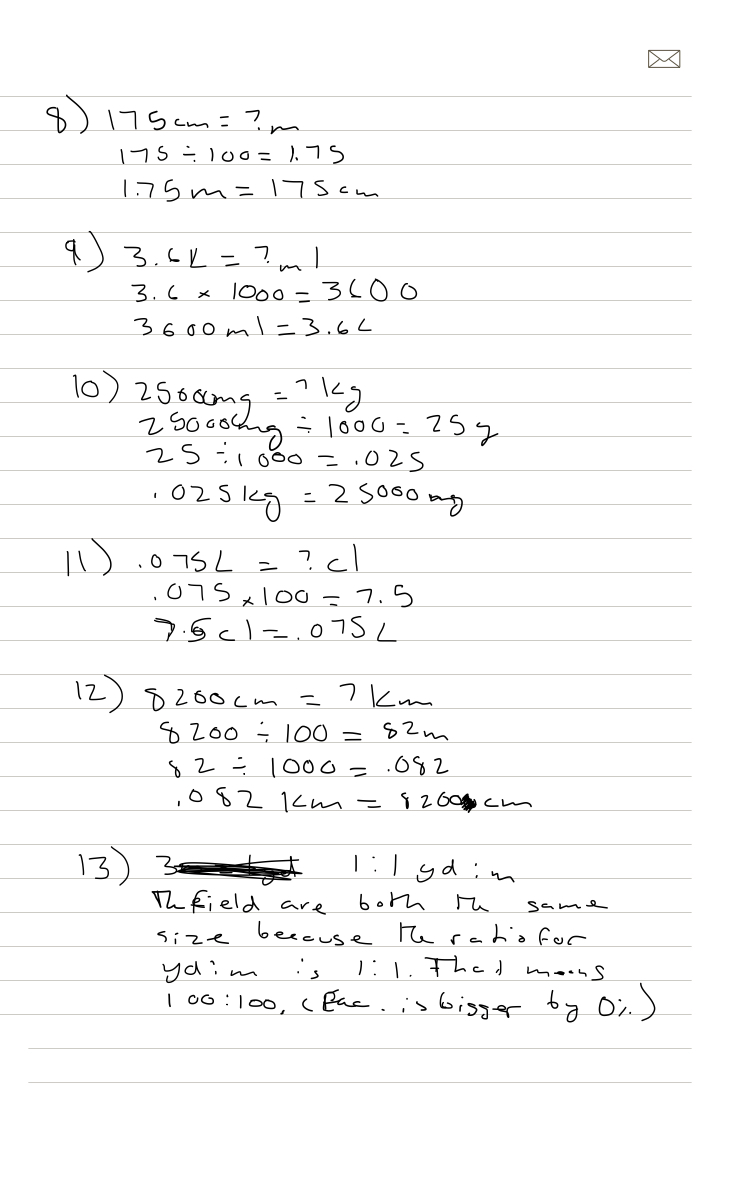 8) 175 cm = ? m
175 ÷ 100 = 1.75
1.75 m = 175 cm
9) 3.6L = ? ml
3.6 × 1000 = 3600
3600 ml = 3.6L
10) 25000mg = ? kg
25000mg ÷ 1000 = 25g
25 ÷ 1000 = .025
.025 kg = 25000 mg
11) .075L = ? cl
.075 × 100 = 7.5
7.5 cl = .075L
12) 8200 cm = ? km
8200 ÷ 100 = 82m
82 ÷ 1000 = .082
.082 km = 8200 cm
13) 1:1 yd:m
The field are both the same
size because the ratio for
yd:m is 1:1. That means
100:100, ( is bigger by 0%)